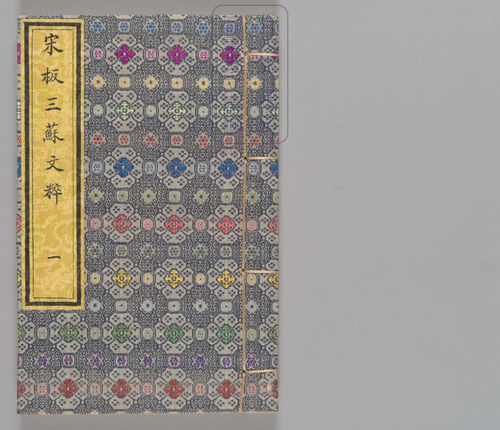 宋板三蘇文粹
一